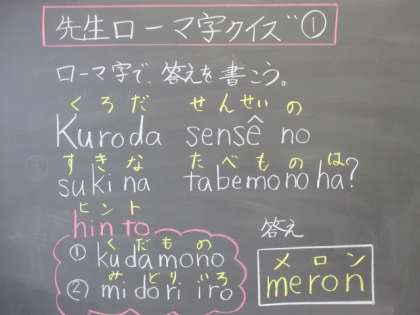 先生ローマ字クイズ①
ローマ字で、答えを書こう。
くろだ せんせいの
Kuroda sensê no
すきな たべものは
sukina tabemono ha?
ヒント
hinto
くだもの
① kudamono
みどり いろ
② midori iro
答え
メロン
meron